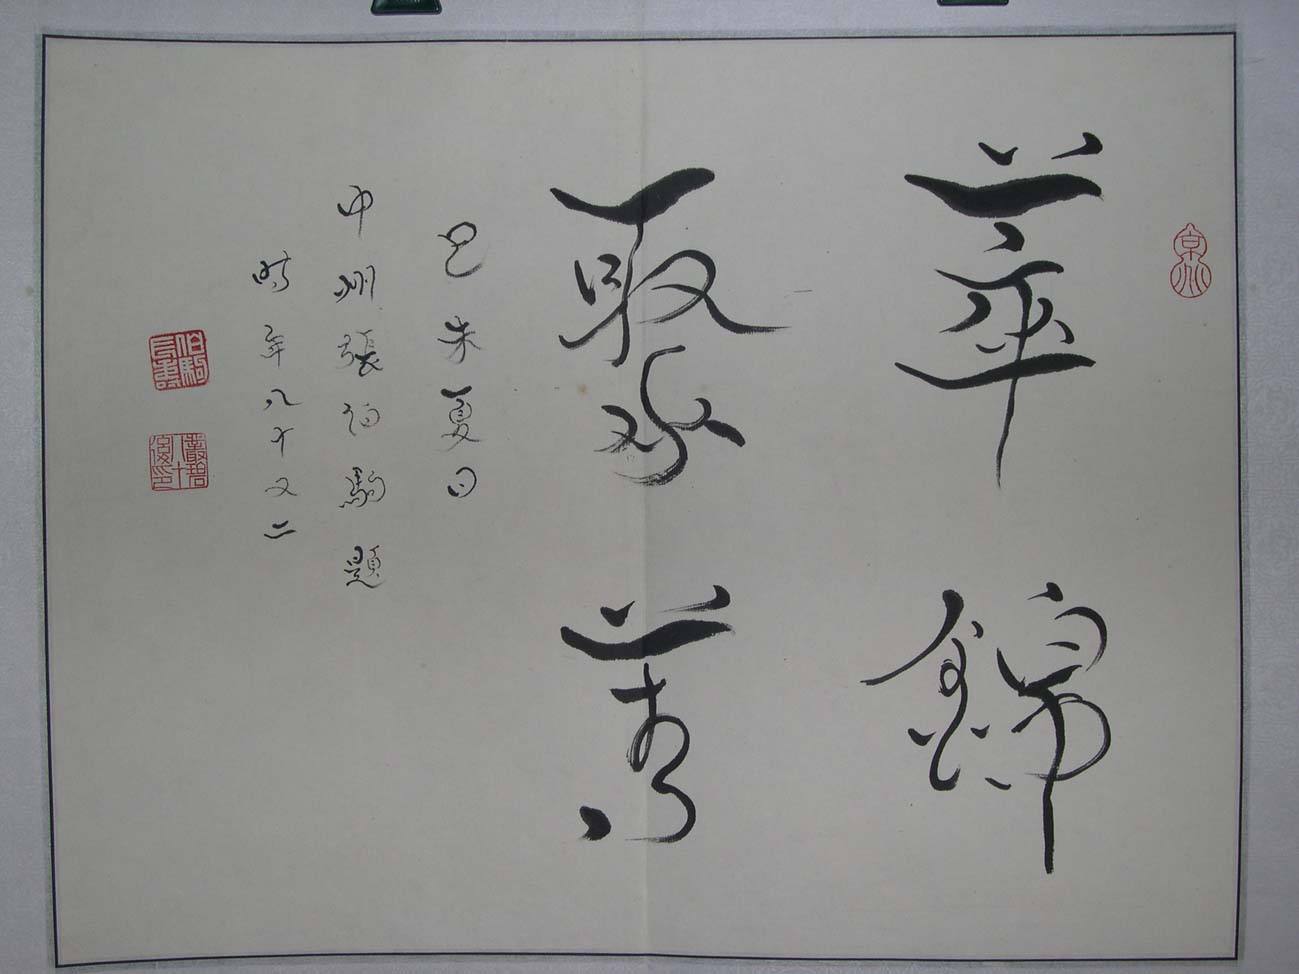 京兆
萃錦
聚
己未夏日
中州張伯駒題
時年八十又二
伯駒長壽
叢碧八十後印